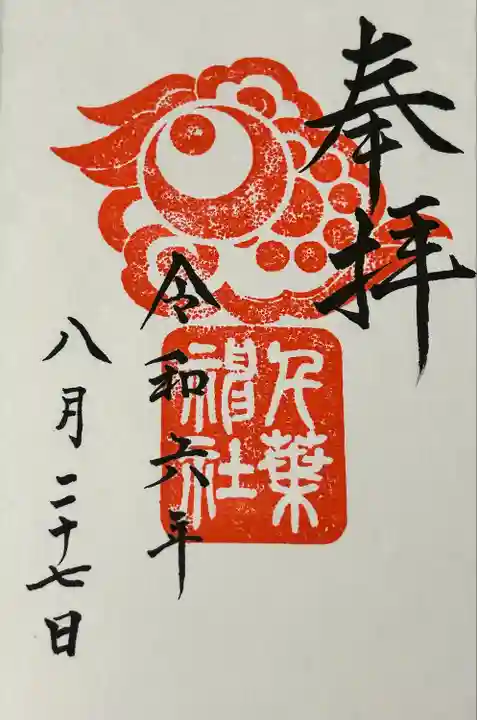 奉拝
千葉
神社
令和六年
八月二十七日